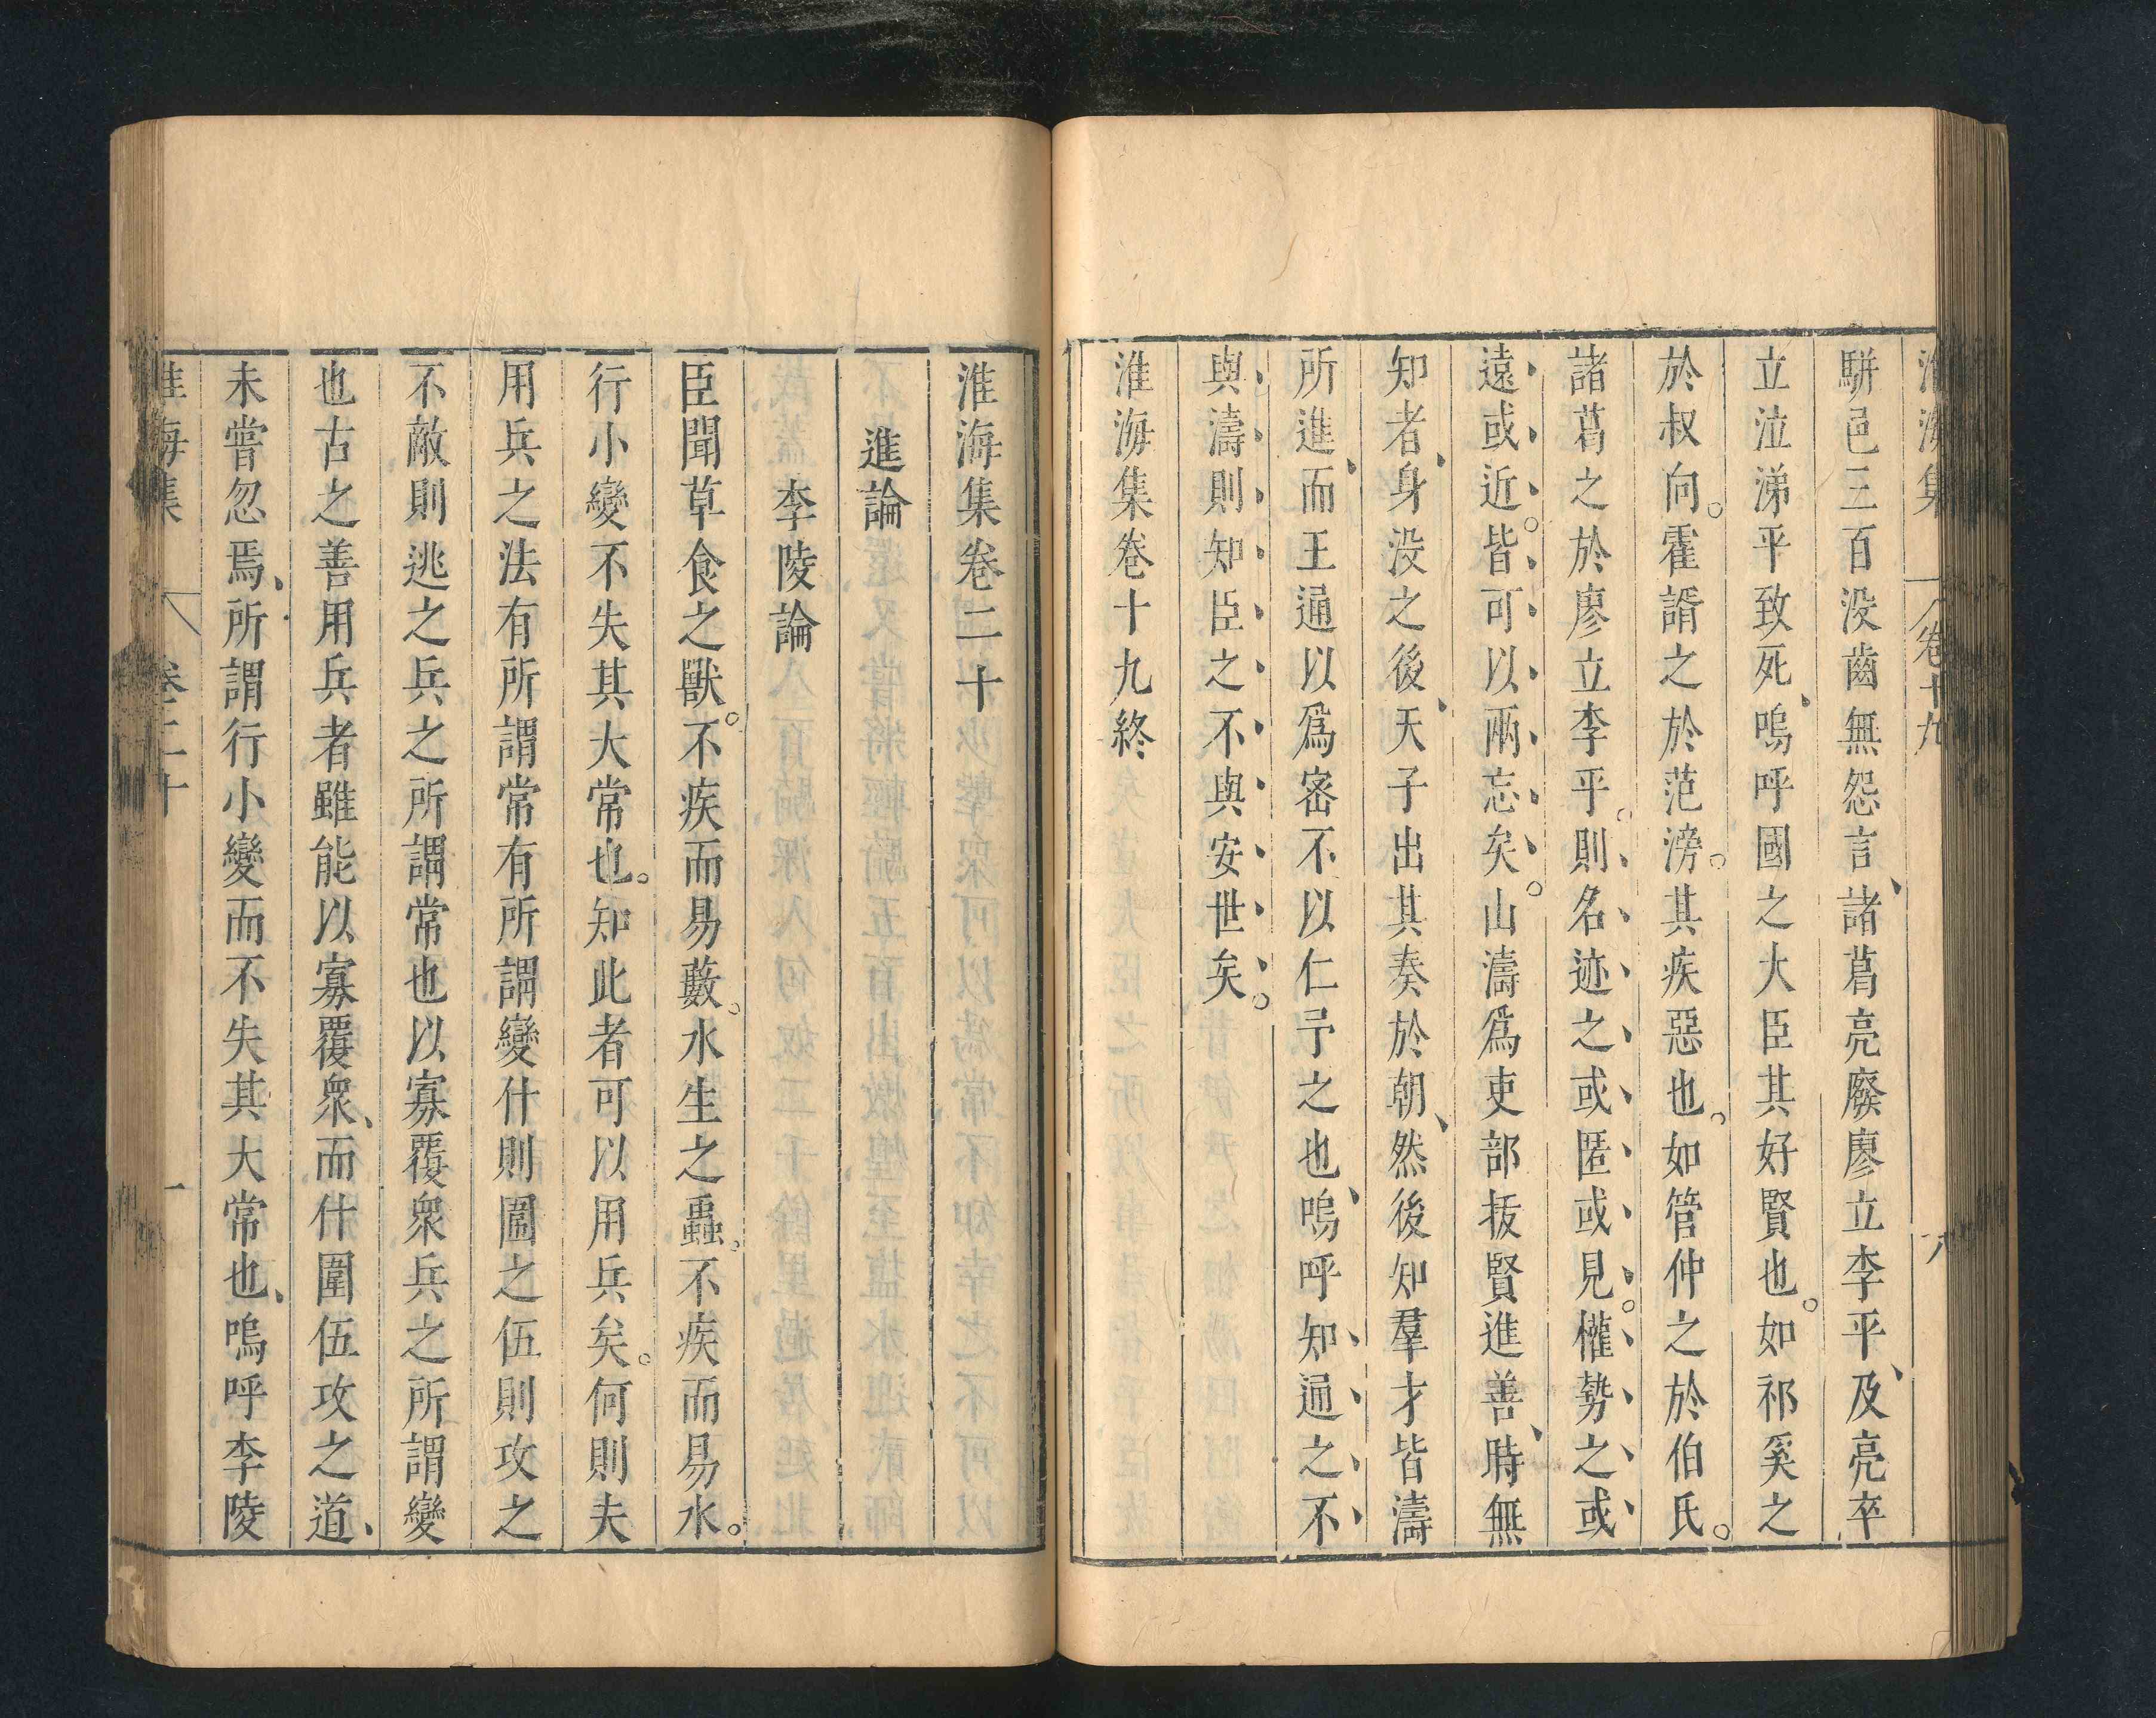 淮海集 卷十九 八
駢邑三百没齒無怨言、諸葛亮廢廖立李平、及亮卒
立泣涕平致死、嗚呼國之大臣其好賢也。如祁奚之
於叔向。霍諝之於范滂。其疾惡也。如管仲之於伯氏。
諸葛之於廖立李平。則名迹之或匿或見。權勢之或
遠或近。皆可以兩忘矣。山濤爲吏部拔賢進善、時無
知者、身没之後、天子出其奏於朝、然後知羣才皆濤
所進、而王通以爲密不以仁予之也、嗚呼知通之不
與濤則知臣之不與安世矣。
淮海集卷十九終
淮海集卷二十
進論
李陵論
臣聞草食之獸。不疾而易藪。水生之蟲。不疾而易水。
行小變不失其大常也。知此者可以用兵矣。何則夫
用兵之法有所謂常有所謂變什則圍之伍則攻之
不敵則逃之兵之所謂常也以寡覆衆兵之所謂變
也古之善用兵者雖能以寡覆衆、而什圍伍攻之道、
未嘗忽焉、所謂行小變而不失其大常也、嗚呼李陵
淮海集 卷二十 一